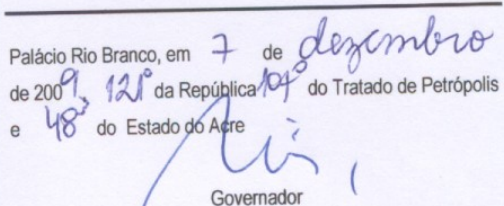 Palácio Rio Branco, em 7 de dezembro
de 2009, 121º da República, 107º do Tratado de Petrópolis
e 48º do Estado do Acre
Governador